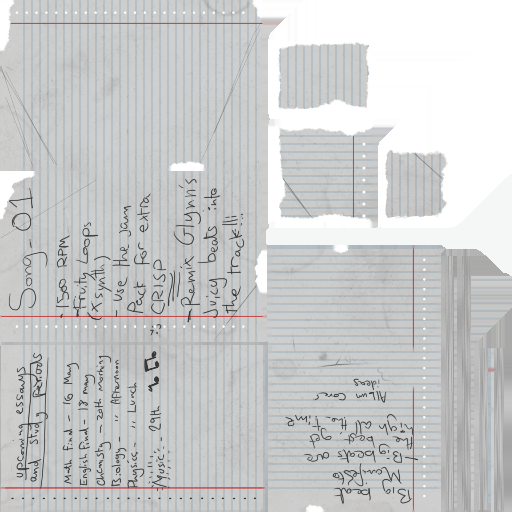 Song-01
- 1500 RPM
- Fruity Loops
(x synth)
- Use the jam
pact for extra
CRISP
- Remix Glynn's
Juicy beats into
the track!!!
upcoming essays
and study periods
Math Final - 16 May
English Final - 18 may
Chemistry - 20th morning
Biology - '' Afternoon
Physics - '' Lunch
Music - 29th
Big beat
Manifesto
- Big beats are
the best, get
high all the time
Album cover
ideas